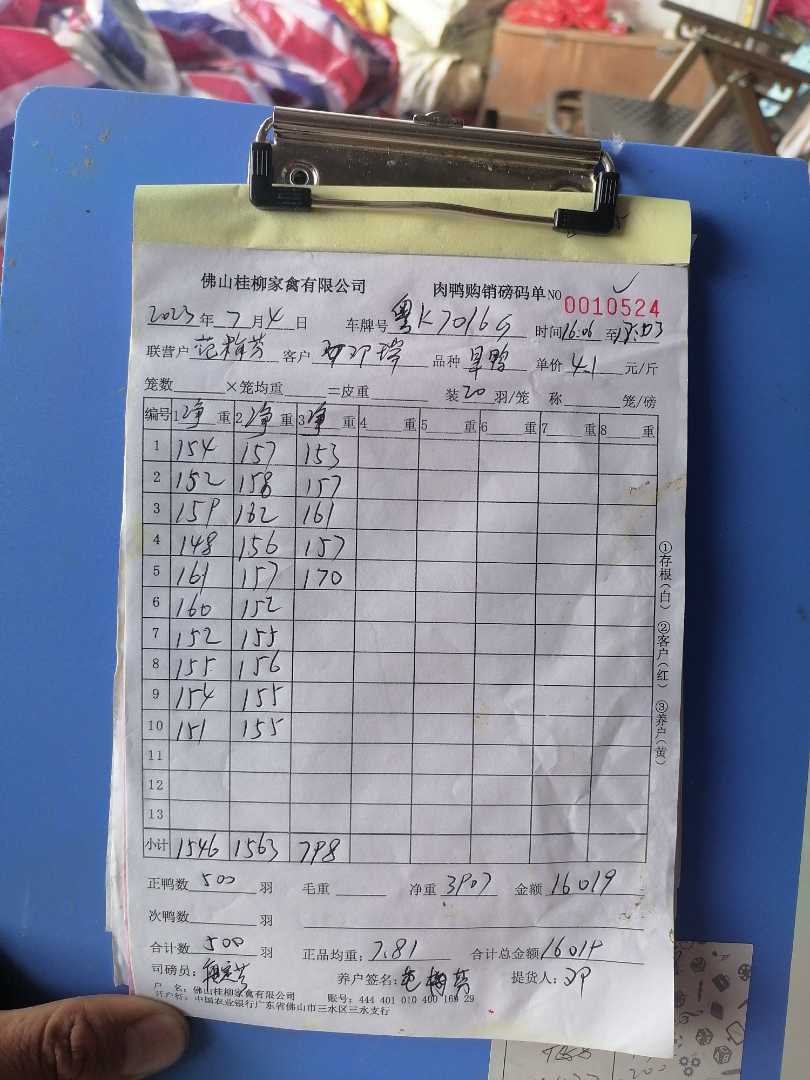 佛山桂柳家禽有限公司 肉鸭购销磅码单 NO 0010524
2023年7月4日 车牌号 粤K7016G 时间16:06至
联营户 范梅芳 客户 瑞 品种 旱鸭 单价 4.1 元/斤
笼数 ×笼均重 =皮重 装 20 羽/笼 称 笼/磅
编号 1 净 重 2 净 重 3 净 重 4 重 5 重 6 重 7 重 8 重
1 154 157 153
2 152 158 157
3 159 162 161
4 148 156 157
5 161 157 170
6 160 152
7 152 155
8 155 156
9 154 155
10 151 155
11
12
13
小计 1546 1563 798
正鸭数 500 羽 毛重 净重 3907 金额 16019
次鸭数 羽
合计数 500 羽 正品均重: 7.81 合计总金额 16019
司磅员: 养户签名: 范梅芳 提货人: 邓
户 名: 佛山桂柳家禽有限公司 账号: 444 401 010 400 169 29
开户行: 中国农业银行广东省佛山市三水区三水支行
①存根(白) ②客户(红) ③养户(黄)